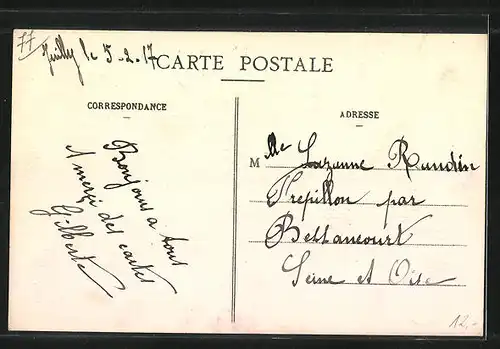 77
Juilly le 5-2-17
CARTE POSTALE
CORRESPONDANCE
Bonjour a tous
A merci des cartes
Gilberte
ADRESSE
Mlle Suzanne
Frepillon par
Bessancourt
Seine et Oise
12.-